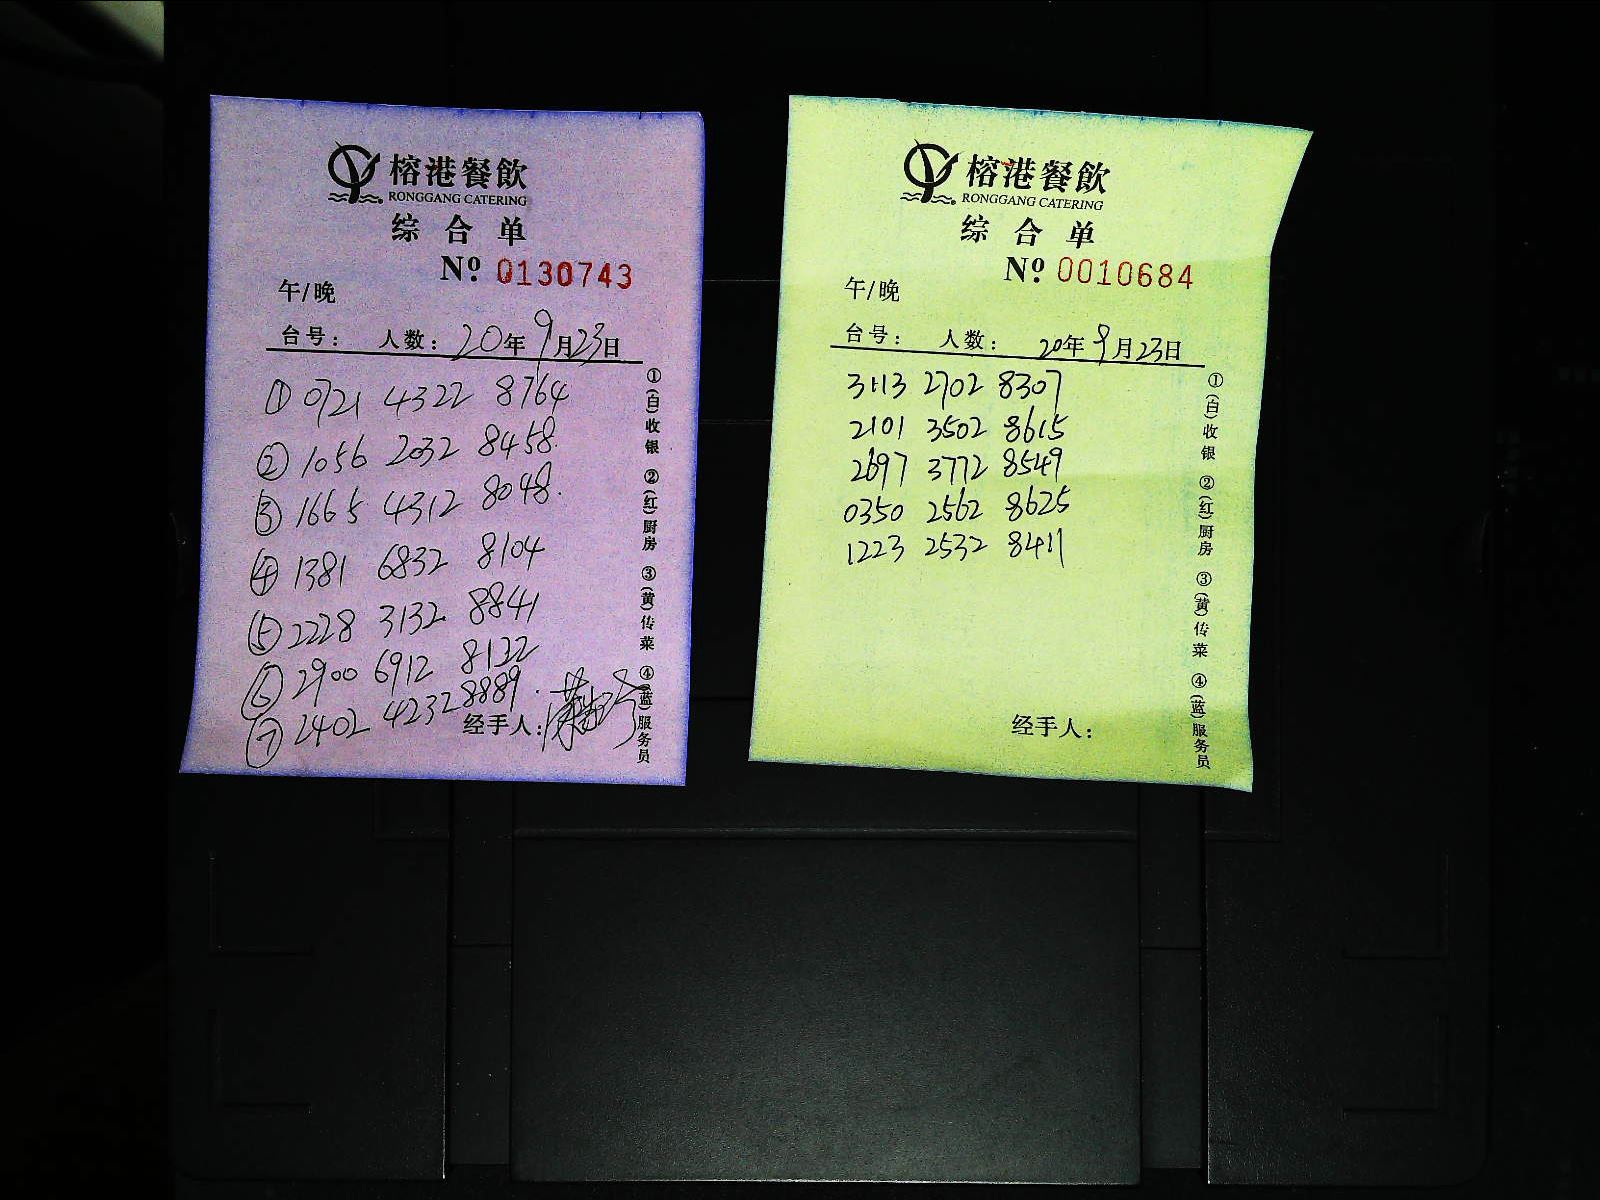 榕港餐飲
RONGGANG CATERING
综合单
Nº 0130743
午/晚
台号： 人数： 20年9月23日
① 0721 4322 8764
② 1056 2032 8458.
③ 1665 4312 8048.
④ 1381 6832 8104
⑤ 2228 3132 8841
⑥ 2900 6912 8132
⑦ 2402 4232 8889.
经手人：
①(白)收银 ②(红)厨房 ③(黄)传菜 ④(蓝)服务员
榕港餐飲
RONGGANG CATERING
综合单
Nº 0010684
午/晚
台号： 人数： 20年9月23日
3113 2702 8307
2101 3502 8615
2697 3772 8549
0350 2562 8625
1223 2532 8411
经手人：
①(白)收银 ②(红)厨房 ③(黄)传菜 ④(蓝)服务员